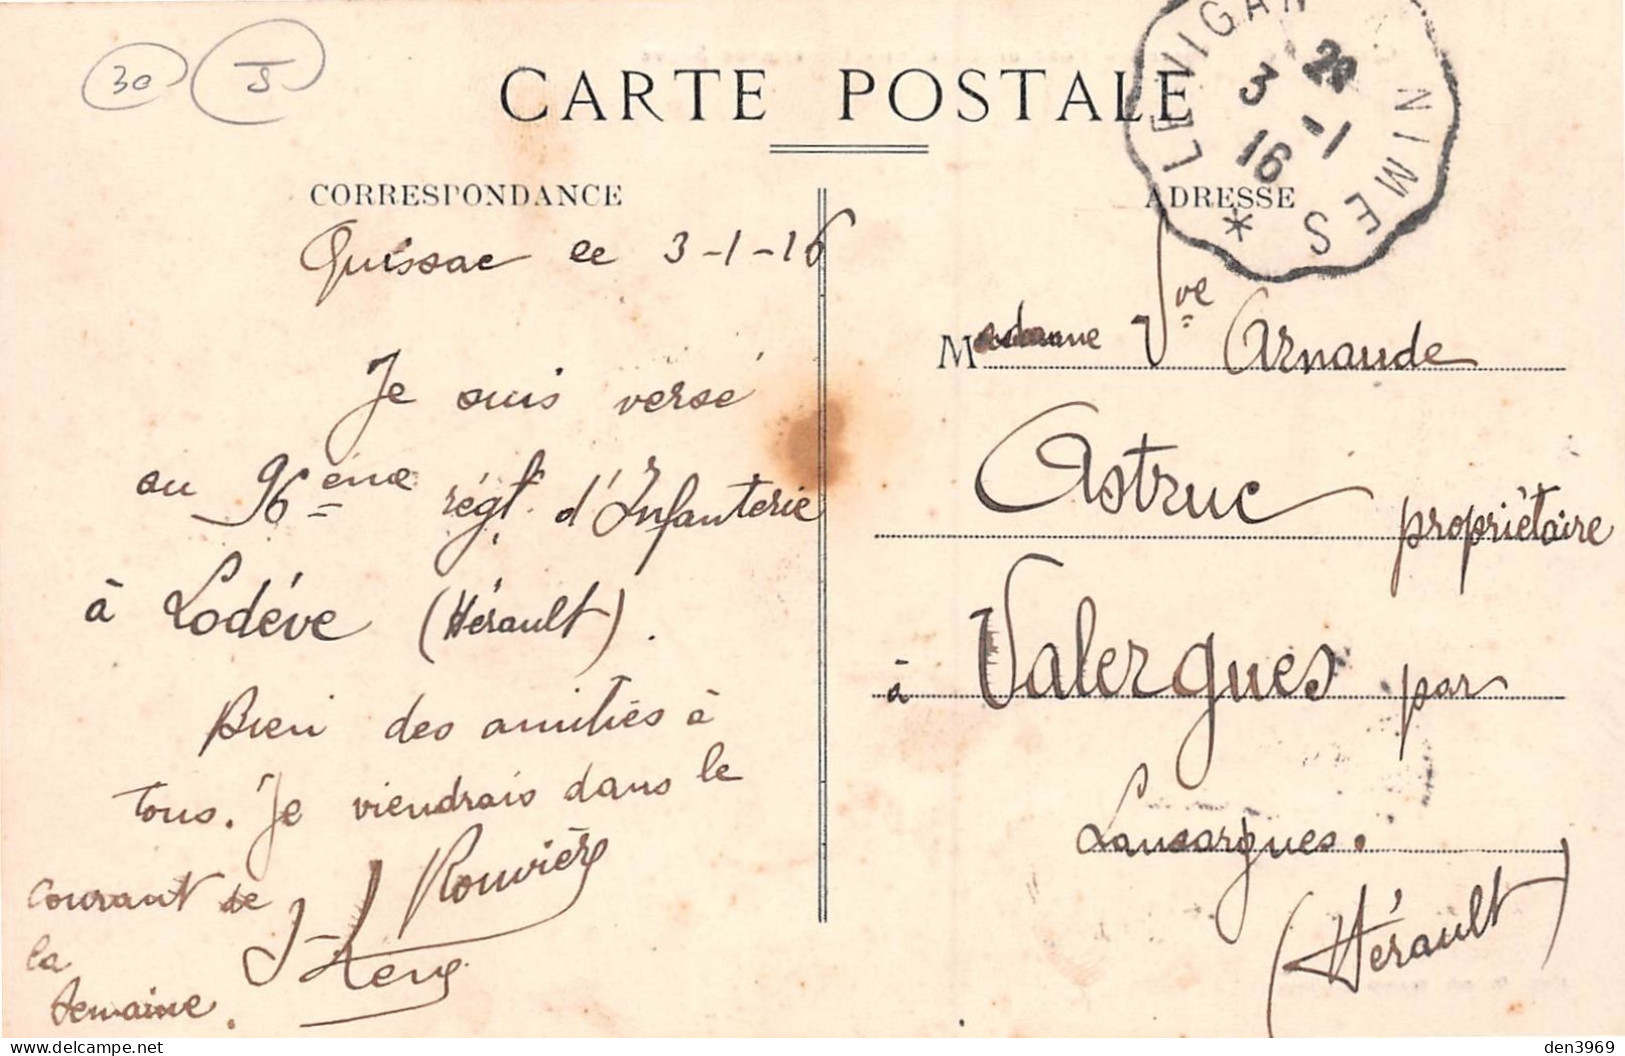 30
CARTE POSTALE
LE VIGAN
NIMES
3
-1
16
*
CORRESPONDANCE
ADRESSE
Quissac le 3-1-16
Je suis versé
au 96ème régt. d'Infanterie
à Lodéve (Hérault).
Bien des amitiés à
tous. Je viendrais dans le
courant de
la
semaine.
Rouvière
Madame Vve Arnaude
Astruc propriétaire
à Valergues par
Lansargues.
(Hérault)
den3969